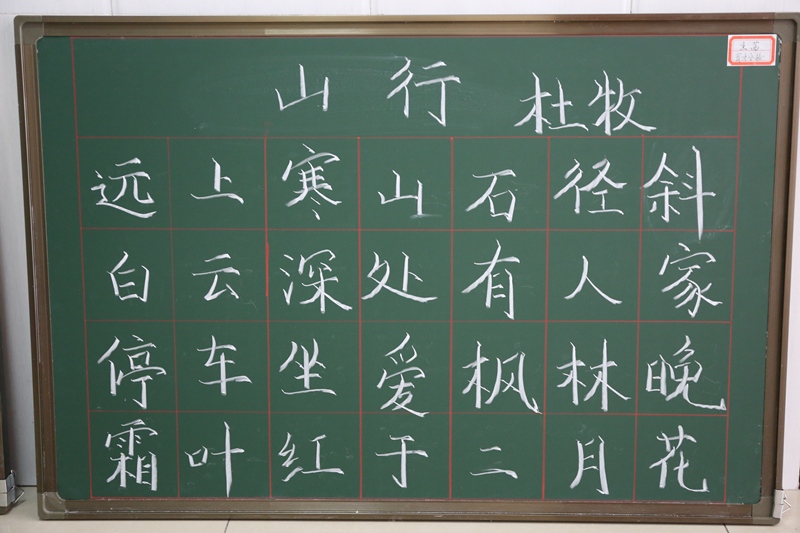 山行 杜牧
远上寒山石径斜
白云深处有人家
停车坐爱枫林晚
霜叶红于二月花